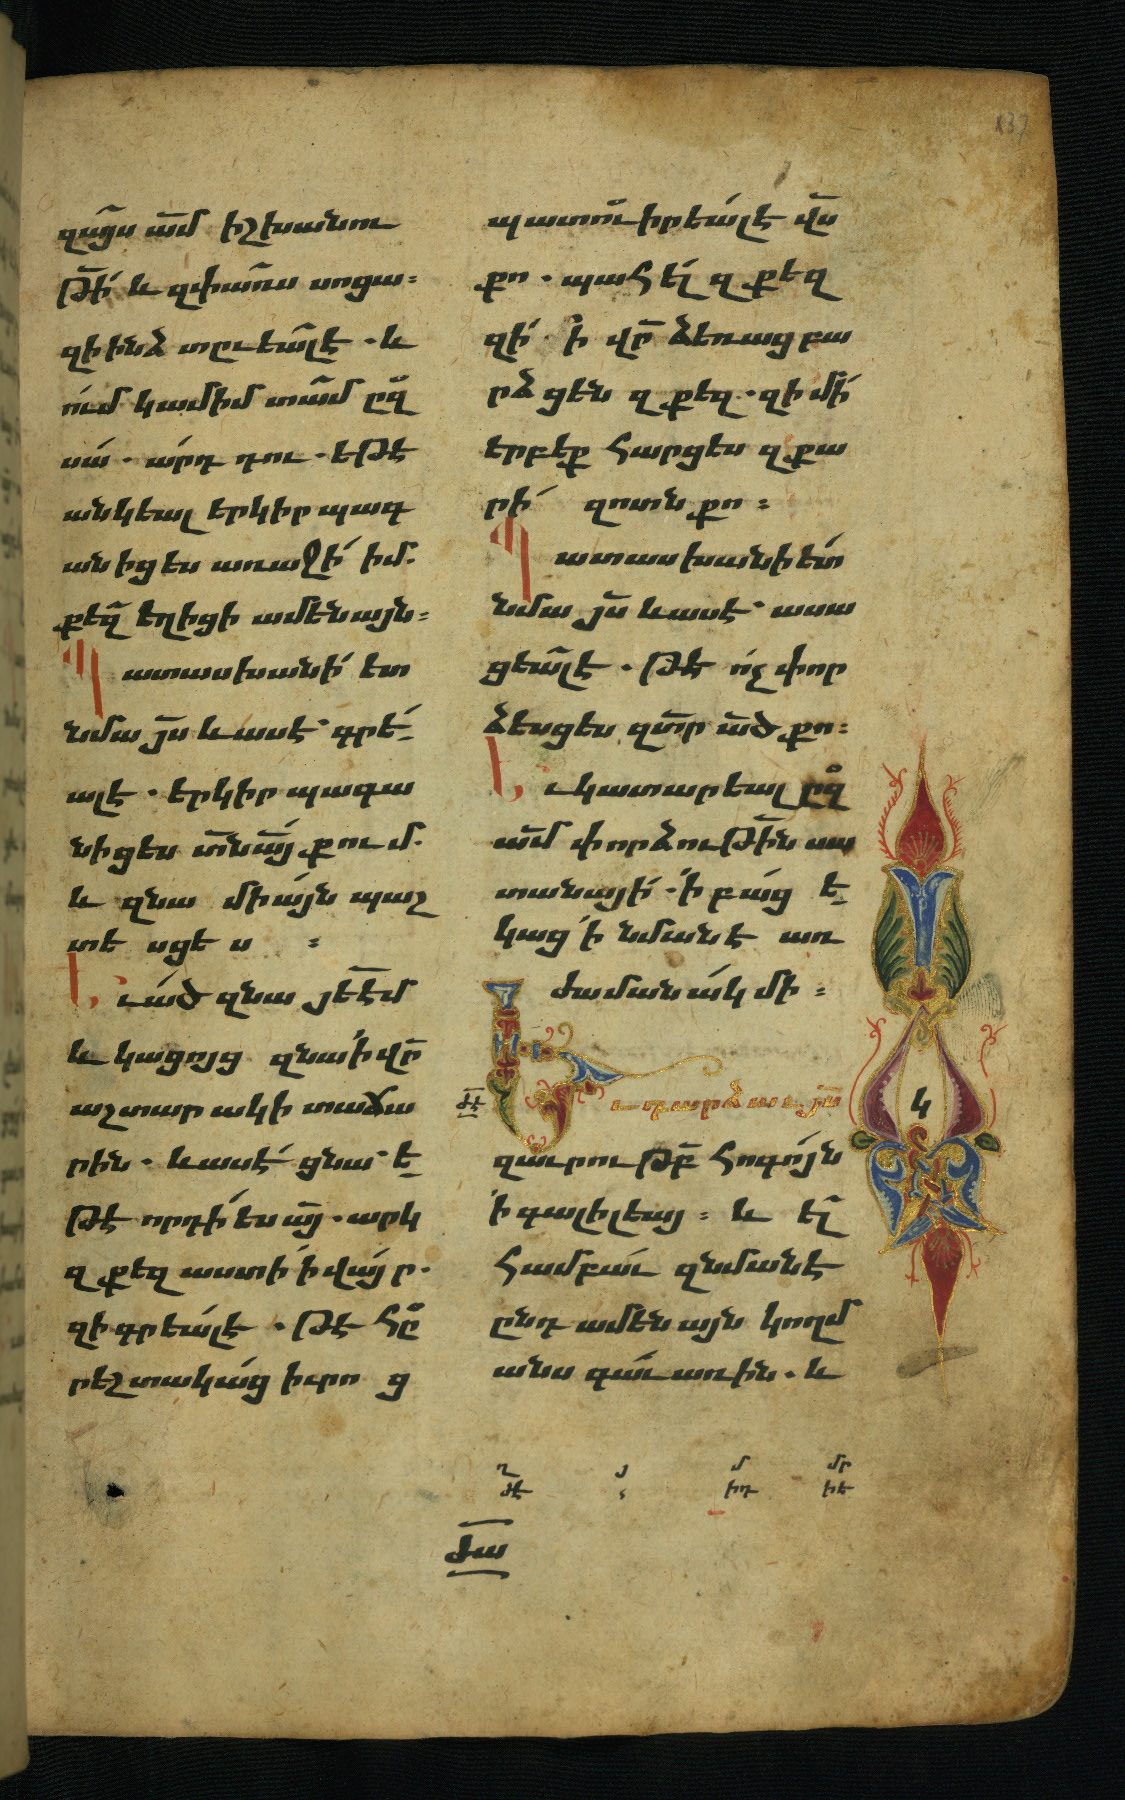 զայցս ա̄մ իշխանու
թի̄ և զփառս սոցա։
զի ինձ տըւեա̄լ է · և
ում կամիմ տամ ըզ
սա · արդ դու · եթէ
անկեալ երկիր պագ
անիցես առաջի իմ.
քեզ եղիցի ամենայն։
Պատասխանի ետ
նմա յ̄ս և ասէ գրե
ալ է · երկիր պագա
նիցես տ̄ն ա̄յ քում.
և զնա միայն պաշ
տեսցես ։
Եւ ած զնա յե̄է̄մ
և կացոյց զնա ի վր̄
աշտարակի տաճա
րին · և ասէ ցնա ե
թէ որդի ես ա̄յ · արկ
զքեզ աստի ի վայր ·
զի գրեալ է · թէ հր
րեշտակաց իւրոց
պատուիրեալ է վ̄ս
քո · պահել զքեզ
զի ի վր̄ ձեռաց բա
րձցեն զքեզ · զի մի
երբեք հարցես զքա
րի զոտն քո ։
Պատասխանի ետ
նմա յ̄ս և ասէ ասա
ցեա̄լ է · թէ ոչ փոր
ձեսցես զտ̄ր ա̄ծ քո ։
Եւ կատարեալ ըզ
ա̄մ փորձութի̄ն սա
տանայի · ի բաց ե
կաց ի նմանէ առ
ժամանակ մի ։
ժէ Եւ դարձաւ յ̄ս
զաւրութբ̄ հոգոյն
ի գալիլեայ ։ և ել
համբաւ զնմանէ
ընդ ամենայն կողմ
անս գաւառին · և
կ
ղ յ մ մր
ժէ ՟ իդ իե
ժա
137